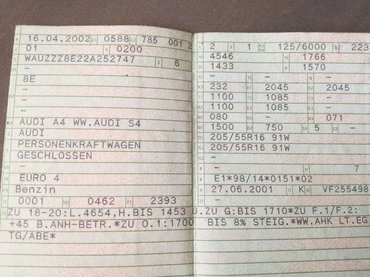 16.04.2002 0588 785 001 2
01 0200
WAUZZZ8E22A252747 6
-
8E
-
-
AUDI A4 WW.AUDI S4
AUDI
PERSONENKRAFTWAGEN
GESCHLOSSEN
-
EURO 4
Benzin
0001 0462 2393
ZU 18-20:L.4654,H.BIS 1453
+45 B.ANH-BETR.*ZU O.1:1700
TG/ABE*
2 1 125/6000 223
4546 1766
1433 1570
- - - -
232 2045 2045
1100 1085 - -
1100 1085 - -
080 - 071
1500 750 5 -
205/55R16 91W
205/55R16 91W
-
-
E1*98/14*0151*02
27.06.2001 K VF255498
U.ZU G:BIS 1710*ZU F.1/F.2:
BIS 8% STEIG.*WW.AHK LT.EG